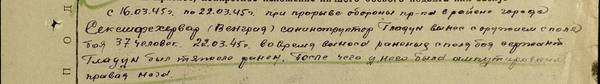 с 16.03.45г. по 22.03.45г. при прорыве обороны пр-ка в районе города
Секешфехервар (Венгрия) санинструктор Гладун вынес с оружием с поля
боя 37 человек. 22.03.45г. во время выноса раненых с поля боя сержант
Гладун был тяжело ранен, после чего у него была ампутирована
правая нога.